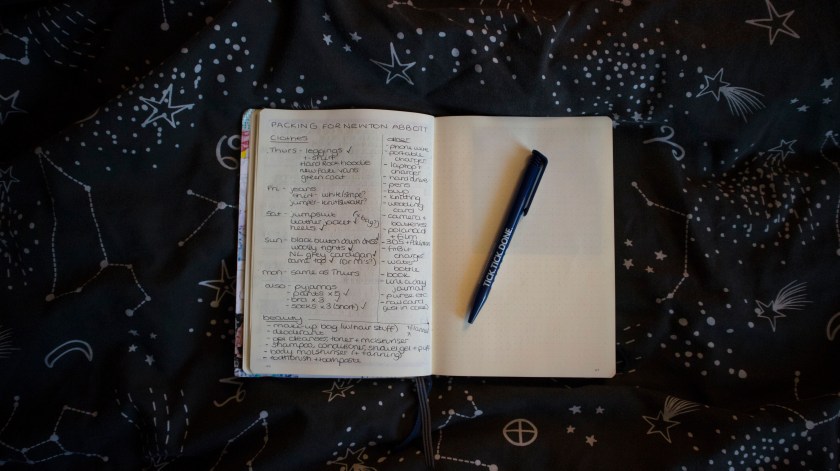 PACKING FOR NEWTON ABBOTT
CLOTHES
Thurs - leggings ✓
t-shirt
Hard Rock hoodie
new pale vans
green coat
Fri - jeans
shirt - white/stripe?
jumper -
Sat - jumpsuit
leather jacket
heels ✓
Sun - black button down dress
woolly tights ✓
grey cardigan
cami top ✓ (or M+S?)
mon - same as Thurs
also - pyjamas
- pants x 5 ✓
- bra x 3 ✓
- socks x 3 (short) ✓
beauty
- make-up bag (w/ hair stuff)
- deodorant
- gel cleanser, toner + moisturiser
- shampoo, conditioner, shower gel + puff
- body moisturiser + tanning
- toothbrush + toothpaste
OTHER
- phone wire
- portable
charger
- laptop +
charger
- hard drive
- pens
- bujo
- knitting
- wedding
card
- camera +
batteries
- polaroid
+ film
- 3DS +
- fitbit
charger
- water
bottle
- book
journal
- purse etc
- railcard
TICK, TICK, DONE.